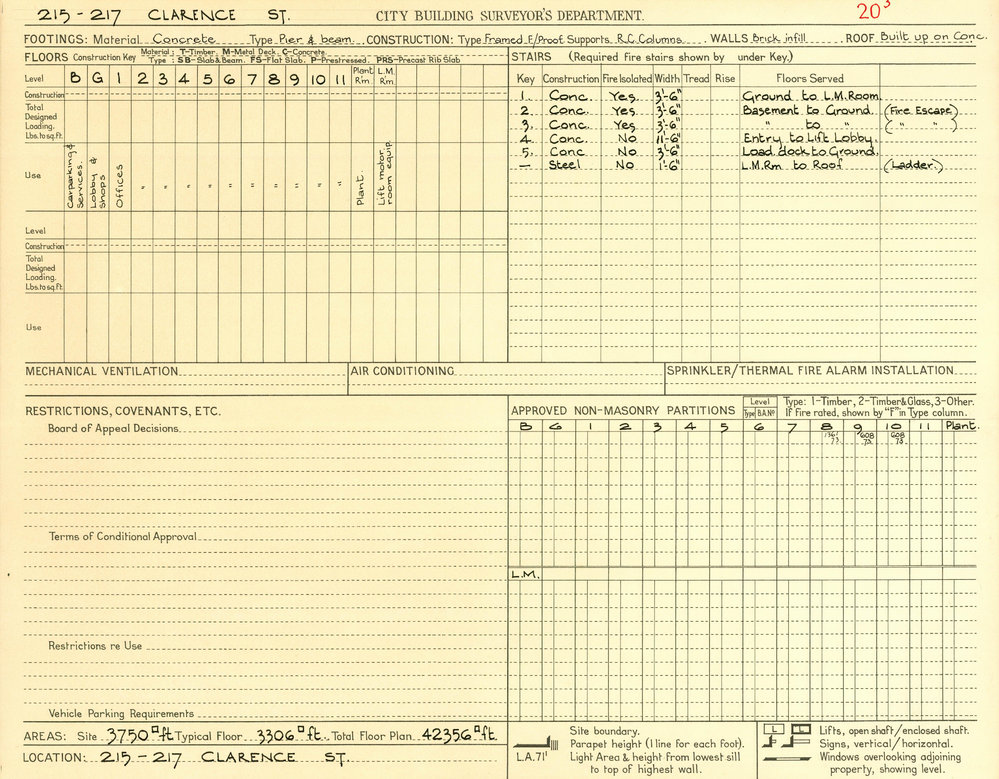 215-217 CLARENCE ST. CITY BUILDING SURVEYOR'S DEPARTMENT. 20³
FOOTINGS: Material Concrete Type Pier & beam. CONSTRUCTION: Type Framed F/Proof Supports R.C. Columns WALLS Brick infill ROOF Built up on Conc.
FLOORS Construction Key Material: T-Timber. M-Metal Deck. C-Concrete
Type: SB-Slab&Beam. FS-Flat Slab. P-Prestressed. PRS-Precast Rib Slab
Level B G 1 2 3 4 5 6 7 8 9 10 11 Plant Rm L.M. Rm.
Construction
Total Designed Loading. Lbs.to sq.ft.
Use Carparking & Services. Lobby & shops Offices " " " " " " " " " " Plant. Lift motor room equip.
Level
Construction
Total Designed Loading. Lbs.to sq.ft.
Use
STAIRS (Required fire stairs shown by under Key.)
Key Construction Fire Isolated Width Tread Rise Floors Served
1. Conc. Yes. 3'-6" Ground to L.M.Room.
2. Conc. Yes. 3'-6" Basement to Ground. (Fire Escape)
3. Conc. Yes 3'-6" " to " ( " " )
4. Conc. No 11'-6" Entry to Lift Lobby.
5. Conc No 3'-6" Load. dock to Ground.
— Steel No 1'-6" L.M.Rm to Roof (Ladder.)
MECHANICAL VENTILATION AIR CONDITIONING SPRINKLER/THERMAL FIRE ALARM INSTALLATION
RESTRICTIONS, COVENANTS, ETC.
Board of Appeal Decisions.
Terms of Conditional Approval
Restrictions re Use
Vehicle Parking Requirements
APPROVED NON-MASONRY PARTITIONS Level Type B.A.Nº Type: 1-Timber, 2-Timber&Glass, 3-Other.
If Fire rated, shown by "F" in Type column.
B G 1 2 3 4 5 6 7 8 9 10 11 Plant.
1361 73 608 73 608 73
L.M.
AREAS: Site 3750 □ft Typical Floor 3306 □ft. Total Floor Plan 42356 □ft.
LOCATION: 215-217 CLARENCE ST.
Site boundary.
Parapet height (1 line for each foot).
L.A.71' Light Area & height from lowest sill
to top of highest wall.
L L Lifts, open shaft/enclosed shaft.
Signs, vertical/horizontal.
Windows overlooking adjoining
property, showing level.